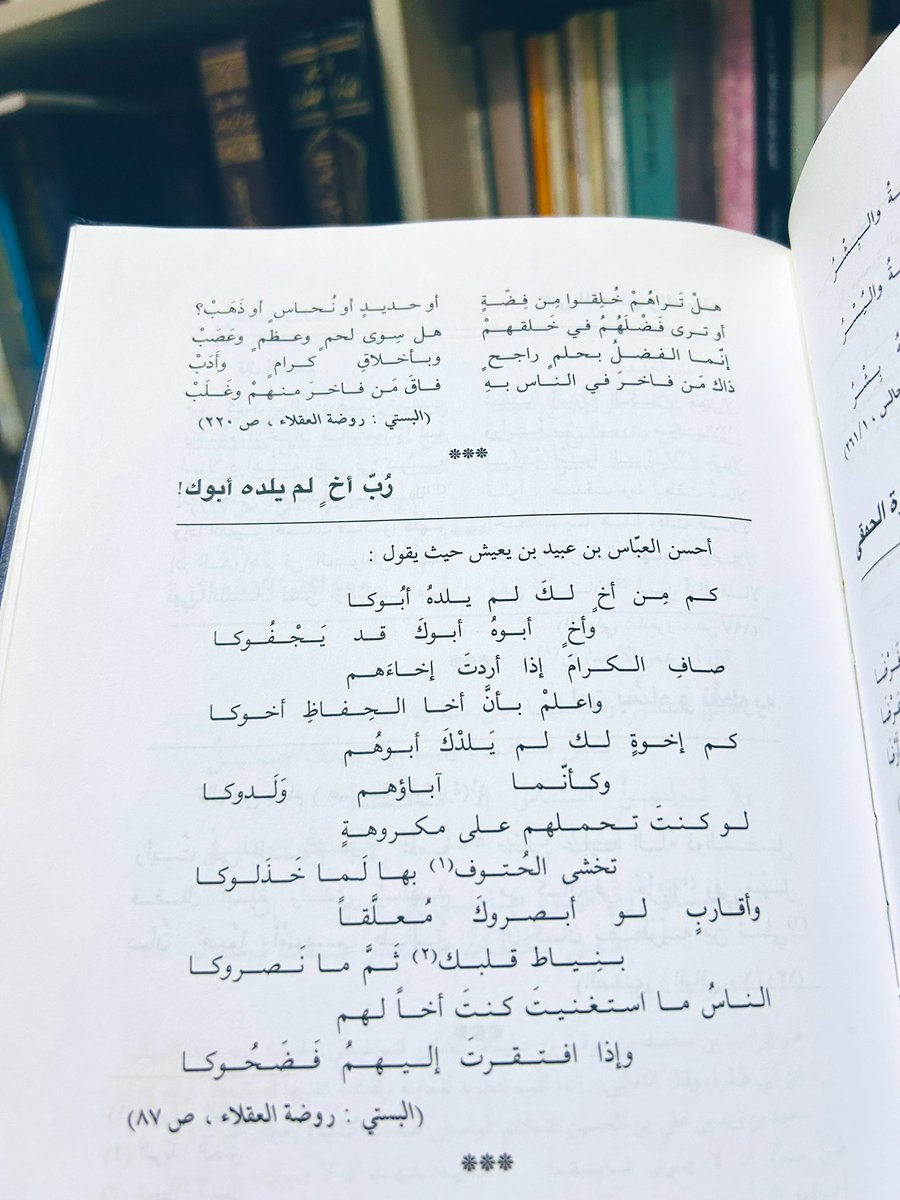 هلْ تَراهُمْ خُلِقوا مِن فِضّةٍ أو حديدٍ أو نُحاسٍ أو ذَهَبْ؟
أو ترى فَضْلَهُمْ في خَلقهمْ هل سِوى لحمٍ وعظمٍ وعَصَبْ
إنّما الفضلُ بحلمٍ راجحٍ وبأخلاقِ كرامٍ وأَدَبْ
ذاك مَن فاخرَ في الناس بهِ فاقَ مَن فاخرَ منهمْ وغَلَبْ
(البستي : روضة العقلاء ، ص ٢٢٠)
***
رُبّ أخٍ لم يلده أبوك!
أحسن العبّاس بن عبيد بن يعيش حيث يقول :
كم مِن أخٍ لكَ لم يلدهُ أبُوكا
وأخٍ أبوهُ أبوكَ قد يَجْفُوكا
صافِ الكرامَ إذا أردتَ إخاءَهم
واعلمْ بأنَّ أخا الحِفاظِ أخوكا
كم إخوةٍ لك لم يَلدْكَ أبوهُم
وكأنّما آباؤهم وَلَدوكا
لو كنتَ تحملهم على مكروهةٍ
تخشى الحُتوف(١) بها لَما خَذَلوكا
وأقاربٍ لو أبصروكَ مُعلَّقاً
بنِياط قلبك(٢) ثَمَّ ما نَصروكا
الناسُ ما استغنيتَ كنتَ أخاً لهم
وإذا افتقرتَ إليهمُ فَضَحُوكا
(البستي : روضة العقلاء ، ص ٨٧)
***
والبِشْرُ
واليُسْرُ
بِشْرُ
٢٦١/١٠)
الحمقى